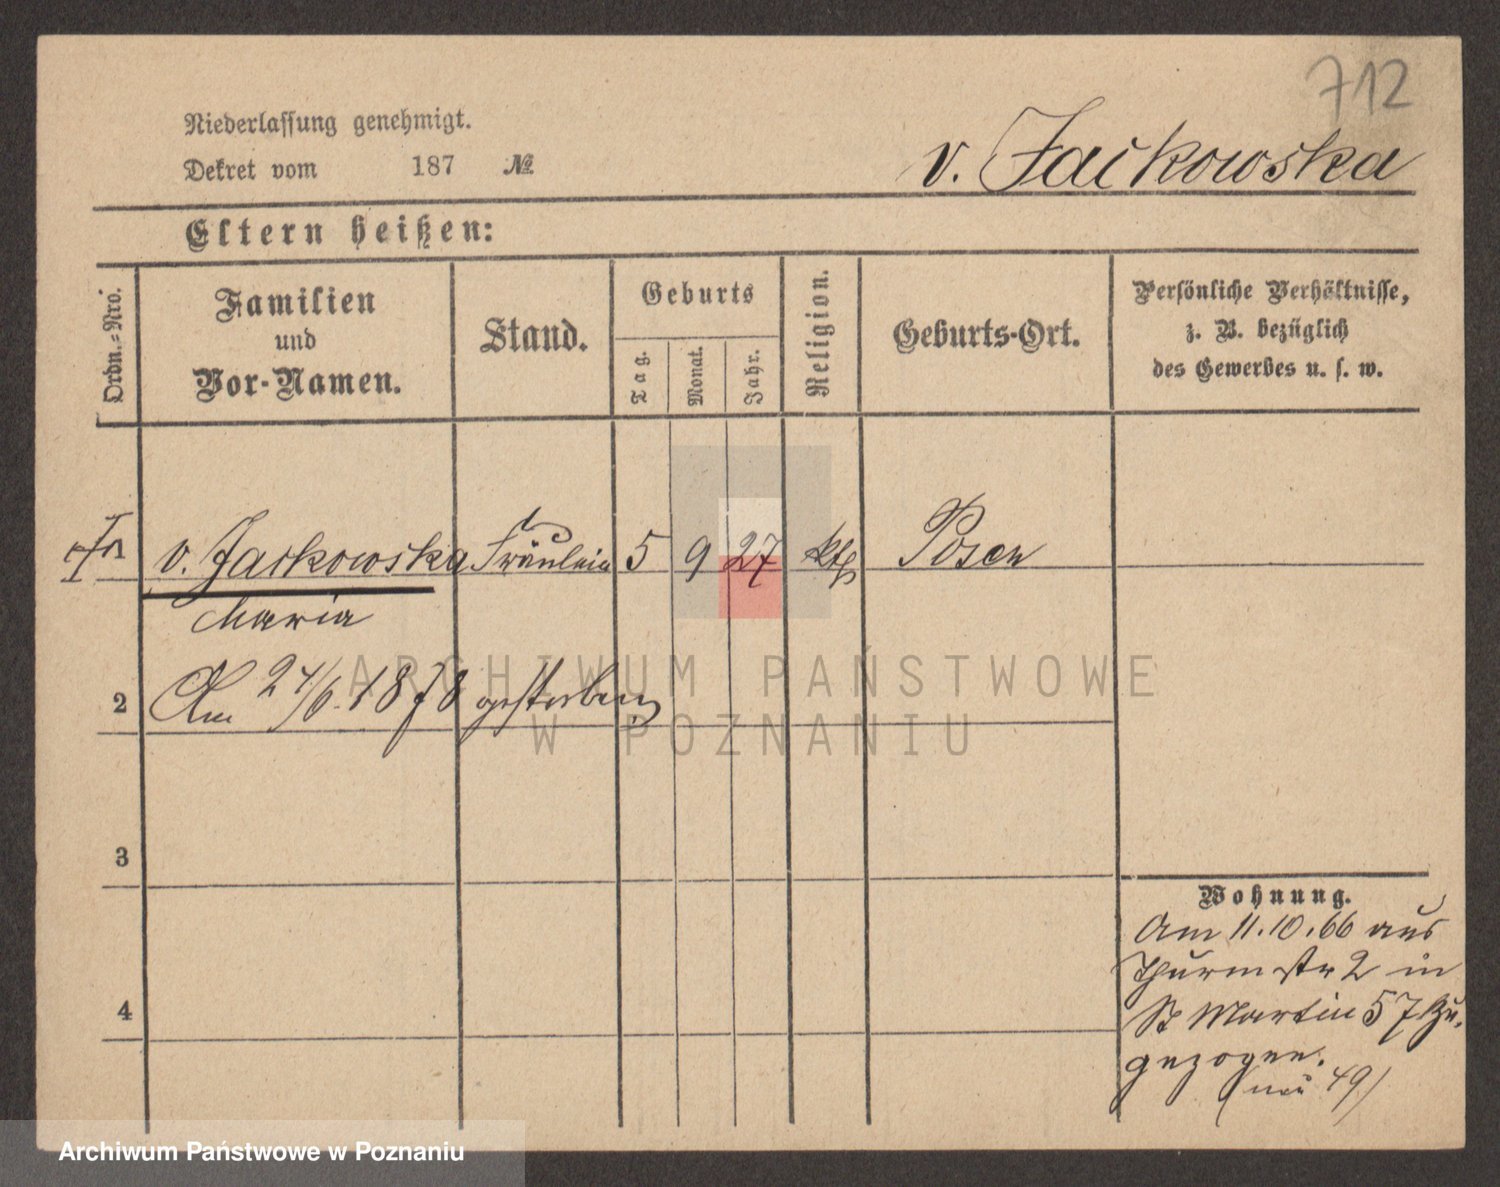 712
Niederlassung genehmigt.
Dekret vom 187 №
v. Jackowska
Eltern heißen:
Ordn.-Nro.
Familien
und
Vor-Namen.
Stand.
Geburts
Tag.
Monat.
Jahr.
Religion.
Geburts-Ort.
Persönliche Verhältnisse,
z. B. bezüglich
des Gewerbes u. s. w.
v. Jackowska Fräulein 5 9 27 kth Posen
Maria
2 Am 24/6. 1878 gestorben
3
4
Wohnung.
Am 11.10.66 aus
Thurmstr 2 in
St Martin 57 zu-
gezogen.
(neu 49)
ARCHIWUM PAŃSTWOWE
W POZNANIU
Archiwum Państwowe w Poznaniu